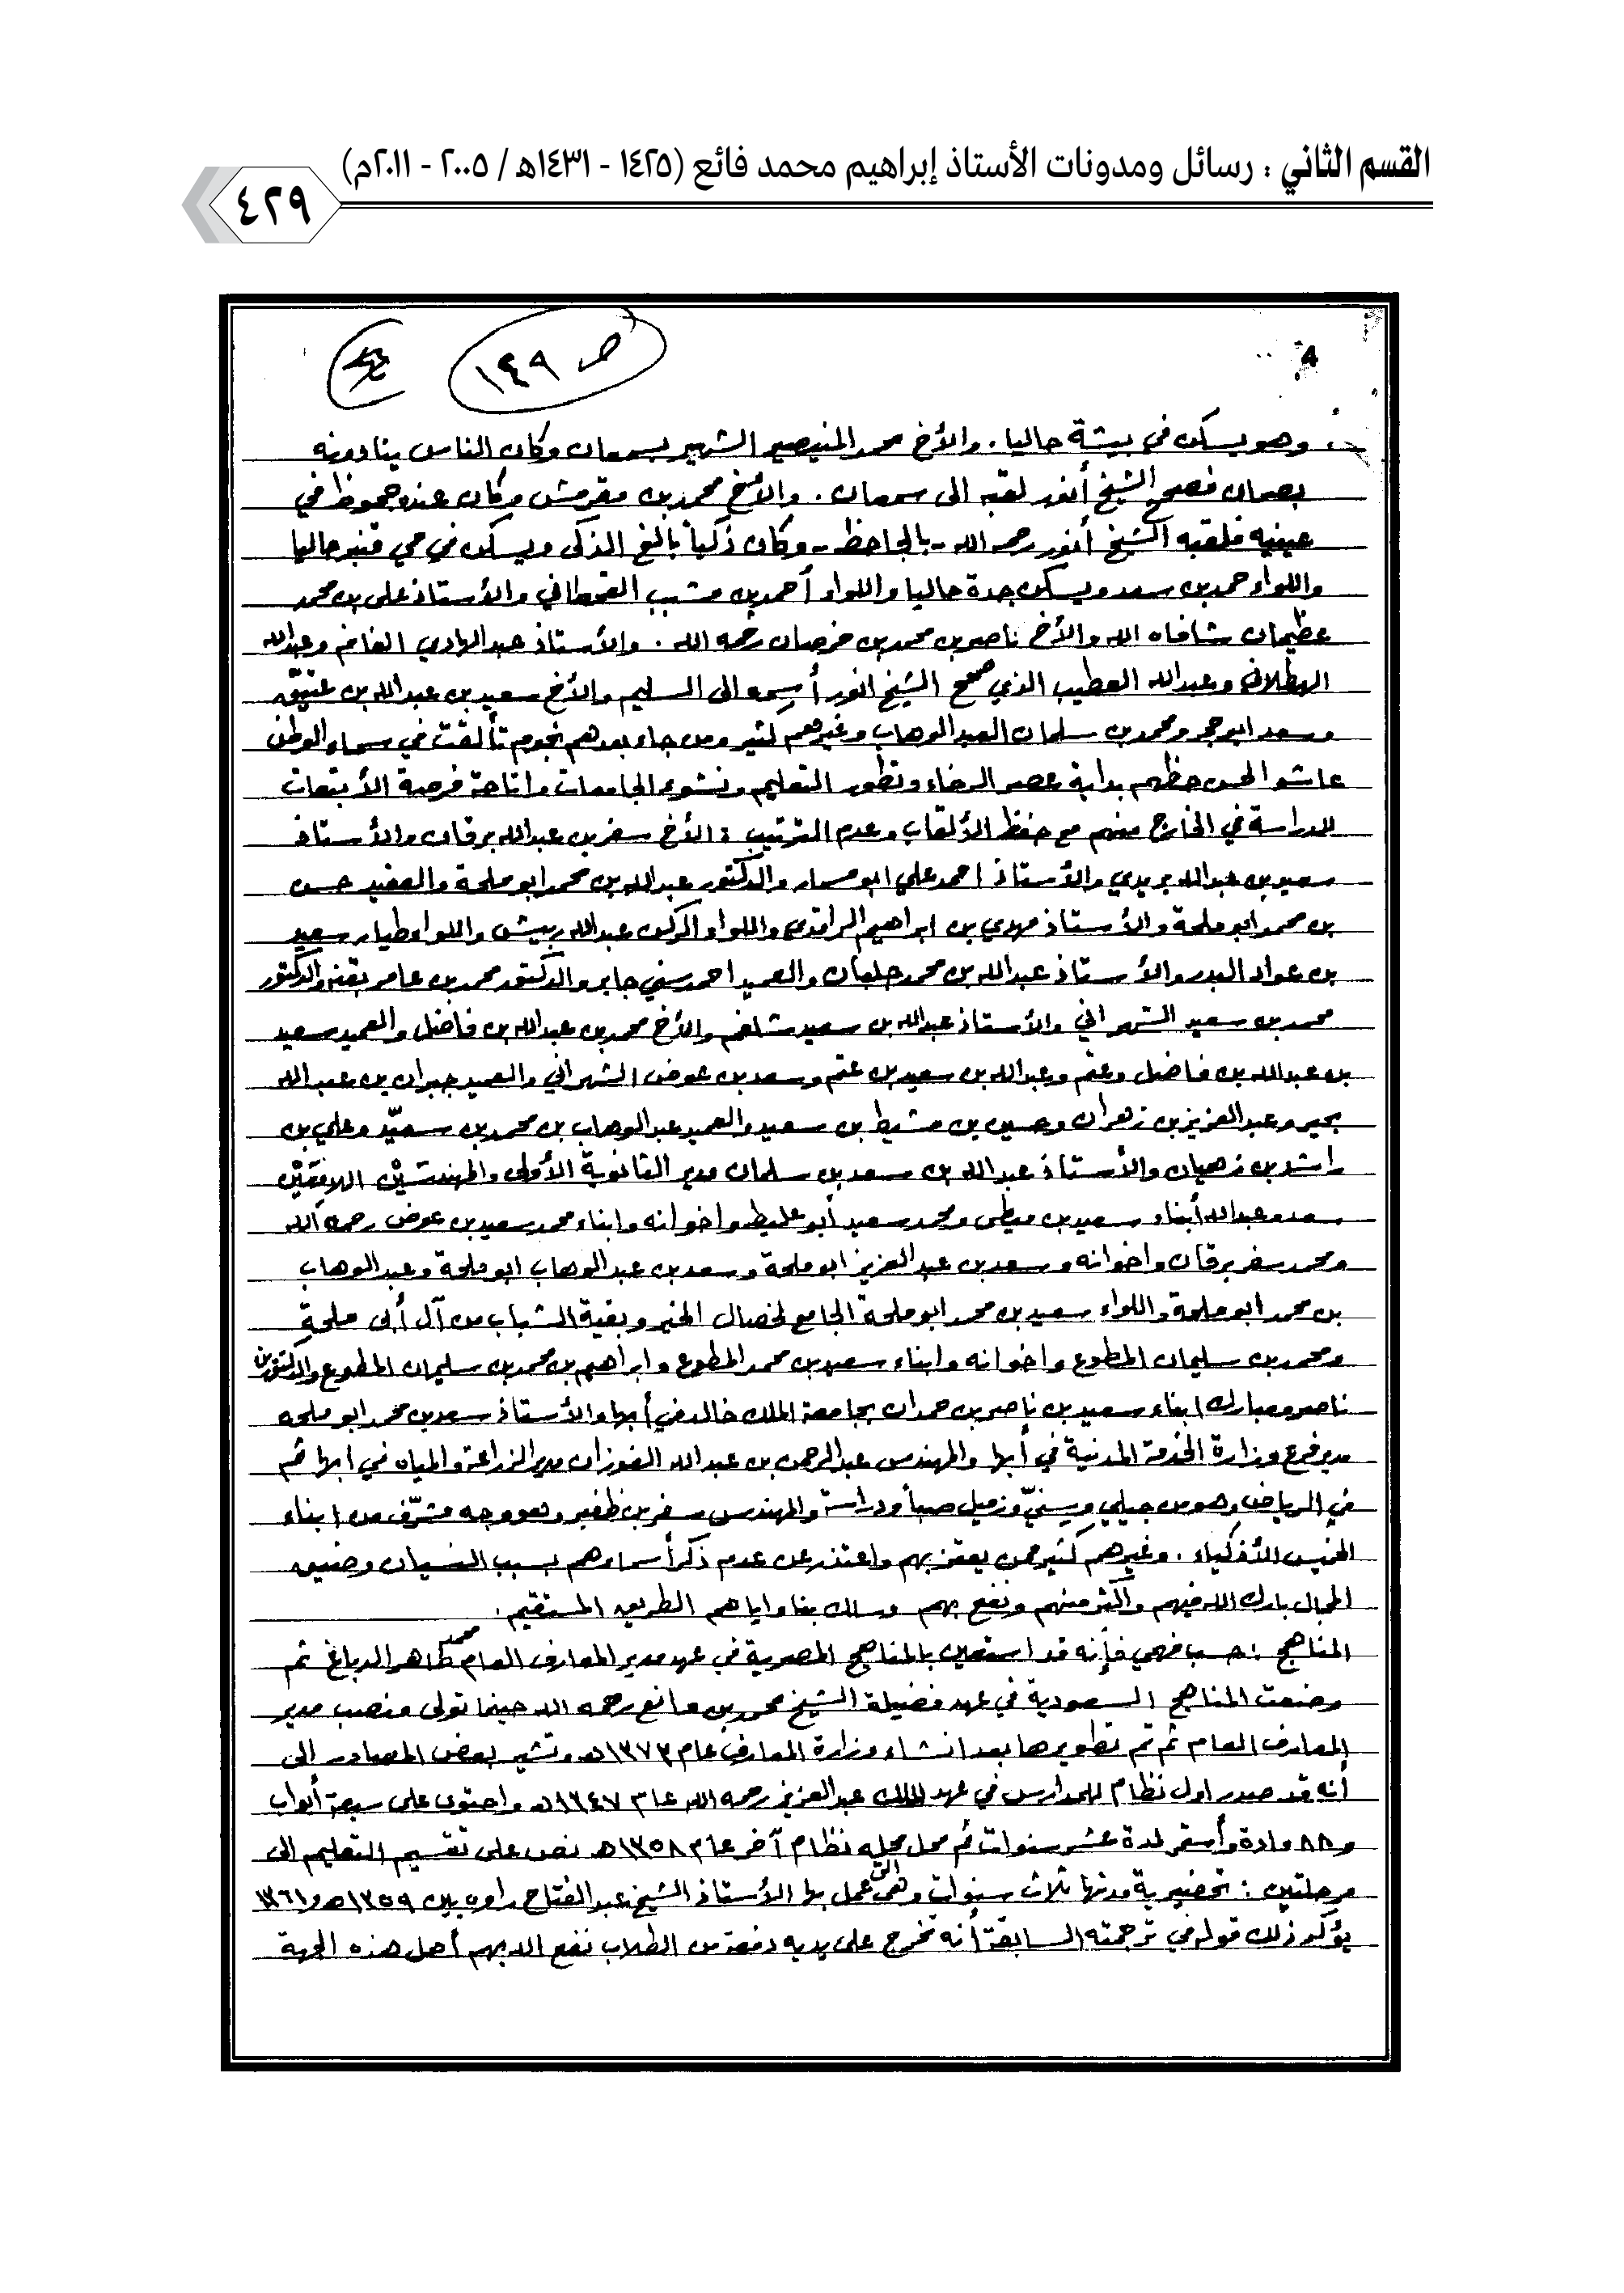 القسم الثاني : رسائل ومدونات الأستاذ إبراهيم محمد فائع (١٤٢٥ - ١٤٣١هـ / ٢٠٠٥ - ٢٠١١م)
٤٢٩
ص ١٤٩
وهو يسكن في بيشة حاليا . والأخ محمد المنيصير الشهير بسمعان وكان الناس ينادونه
بصمان فصحح الشيخ أنور لقبه الى سمعان . والأخ محمد بن مقرمش وكان عنده جحوظ في
عينيه فلقبه الشيخ أنور رحمه الله - بالجاحظ - وكان ذكياً بالغ الذكى ويسكن في حي قنبر حاليا
واللواء حمد بن سعد ويسكن جدة حاليا واللواء أحمد بن مشبب القحطاني والأستاذ علي بن محمد
عظيمان شافاه الله والأخ ناصر بن محمد بن خرصان رحمه الله . والأستاذ عبد الهادي الغانم وعبدالله
الهطلاني وعبدالله العطيب الذي صحح الشيخ انور أسمه الى السليم والأخ سعيد بن عبدالله بن عتيق
وسعد ابو حجر ومحمد بن سلمان العبد الوهاب وغيرهم كثير ومن جاء بعدهم نجوم تألقت في سماء الوطن
عاشو لحسن حظهم بداية عصر الرخاء وتطور التعليم ونشوء الجامعات واتاحة فرصة الأبتعاث
للدراسة في الخارج منهم مع حفظ الألقاب وعدم الترتيب : الأخ سفر بن عبدالله برقان والأستاذ
سعيد بن عبدالله بريدي والأستاذ احمد علي ابو مسمار والدكتور عبدالله بن محمد ابو ملحة والعقيد حسن
بن محمد ابو ملحة والأستاذ مهدي بن ابراهيم الراقدي واللواء الركن عبدالله ربيش واللواء طيار سعيد
بن عواد البدر والأستاذ عبدالله بن محمد جلبان والعميد احمد سني جابر والدكتور محمد بن عامر بقنه والدكتور
محمد بن سعيد الشهراني والأستاذ عبدالله بن سعيد شلغم والأخ محمد بن عبدالله بن فاضل والعميد سعيد
بن عبدالله بن فاضل وعثم وعبدالله بن سعيد بن عثم وسعد بن عوض الشهراني والعميد جبران بن عبدالله
بحير وعبدالعزيز بن زهران وحسين بن مشيط بن سعيد والعميد عبدالوهاب بن محمد بن سعيّد وعلي بن
راشد بن زهيان والأستاذ عبدالله بن سعد بن سلمان مدير الثانوية الأولى والمهندسَيْن اللامعَيْن
سعد وعبدالله أبناء سعيد بن معيطي ومحمد سعيد أبو عليط واخوانه وابناء محمد سعيد بن عوض رحمه الله
ومحمد سفر برقان واخوانه وسعد بن عبدالعزيز ابو ملحة وسعد بن عبدالوهاب ابو ملحة وعبدالوهاب
بن محمد ابو ملحة واللواء سعيد بن محمد ابو ملحة الجامع لخصال الخير وبقية الشباب من آل أبي ملحة
ومحمد بن سليمان المطوع واخوانه وابناء سعيد بن محمد المطوع وابراهيم بن محمد بن سليمان المطوع والدكتورين
ناصر ومبارك ابناء سعيد بن ناصر بن حمدان بجامعة الملك خالد في أبها والأستاذ سعد بن محمد ابو ملحه
مدير فرع وزارة الخدمة المدنية في أبها والمهندس عبدالرحمن بن عبدالله الفوزان مدير الزراعة والمياه في ابها ثم
في الرياض وهو من جيلي وسِنيّ وزميل صباً ودراسة والمهندس سفر بن ظفير وهو وجه مشرّف من ابناء
الخميس الأذكياء . وغيرهم كثير ممن يعتز بهم واعتذر عن عدم ذكر أسماءهم بسبب النسيان وضيق
المجال بارك الله فيهم وأكثر منهم ونفع بهم وسلك بنا واياهم الطريق المستقيم .
المناهج : حسب فهمي فإنه قد استعين بالمناهج المصرية في عهد مدير المعارف العام محمد طاهر الدباغ ثم
وضعت المناهج السعودية في عهد فضيلة الشيخ محمد بن مانع رحمه الله حينما تولى منصب مدير
المعارف العام ثم تم تطويرها بعد انشاء وزارة المعارف عام ١٣٧٣هـ وتشير بعض المصادر الى
أنه قد صدر اول نظام للمدارس في عهد الملك عبدالعزيز رحمه الله عام ١٣٤٧هـ واحتوى على سبعة أبواب
و٨٨ مادة وأستمر لمدة عشر سنوات ثم حل محله نظام آخر عام ١٣٥٨هـ نص على تقسيم التعليم الى
مرحلتين : تحضيرية مدتها ثلاث سنوات وهي التي عمل بها الأستاذ الشيخ عبدالفتاح راوه بين ١٣٥٩هـ و١٣٦١
يؤكد ذلك قوله في ترجمته السابقة أنه تخرج على يديه دفعة من الطلاب نفع الله بهم أهل هذه الجهة